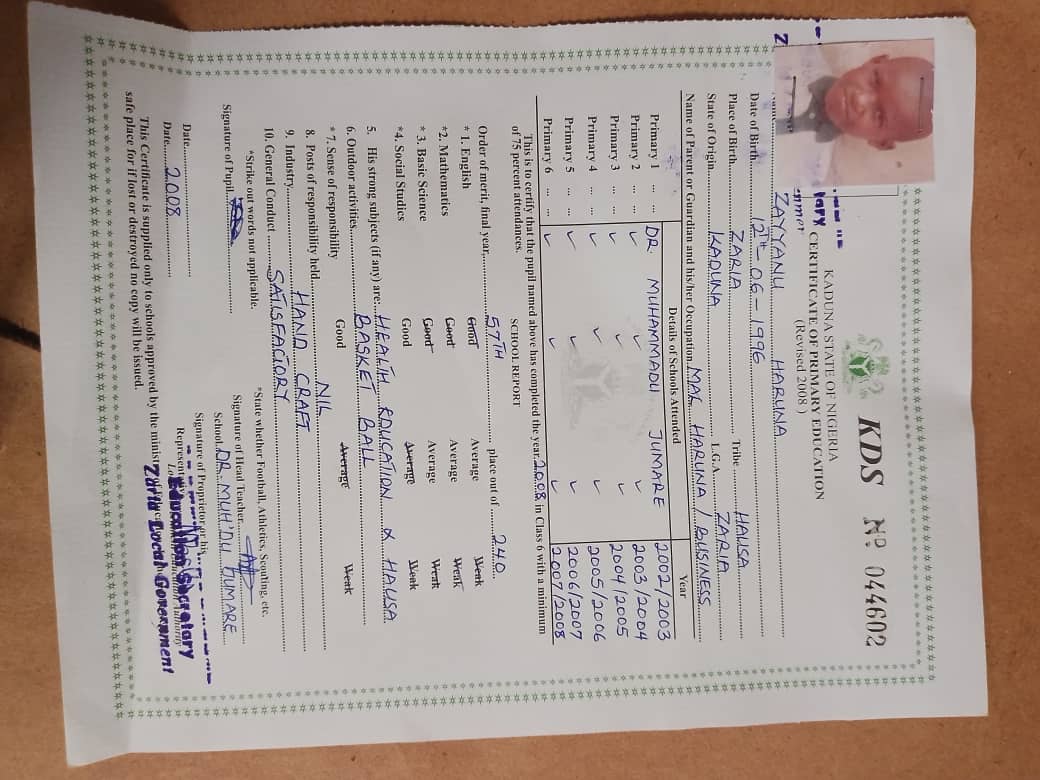 KDS Nº 044602
KADUNA STATE OF NIGERIA
CERTIFICATE OF PRIMARY EDUCATION
(Revised 2008)
ZAYYANU HARUNA
Date of Birth 12TH-06-1996
Place of Birth ZARIA Tribe HAUSA
State of Origin KADUNA L.G.A. ZARIA
Name of Parent or Guardian and his/her Occupation MAL HARUNA / BUSINESS
Details of Schools Attended Year
Primary 1 ... ... DR. MUHAMMADU JUMARE 2002/2003
Primary 2 ... ... ✓ ✓ ✓ 2003/2004
Primary 3 ... ... ✓ ✓ 2004/2005
Primary 4 ... ... ✓ ✓ ✓ 2005/2006
Primary 5 ... ... ✓ ✓ ✓ 2006/2007
Primary 6 ... ... ✓ ✓ ✓ 2007/2008
This is to certify that the pupil named above has completed the year 2008 in Class 6 with a minimum
of 75 percent attendances.
SCHOOL REPORT
Order of merit, final year, 57TH place out of 240
* 1. English Good Average Weak
*2. Mathematics Good Average Weak
* 3. Basic Science Good Average Weak
*4. Social Studies Good Average Weak
5. His strong subjects (if any) are: HEALTH EDUCATION & HAUSA
6. Outdoor activities BASKET BALL
* 7. Sense of responsibility Good Average Weak
8. Posts of responsibility held NIL
9. Industry HAND CRAFT
10. General Conduct SATISFACTORY
*Strike out words not applicable. *State whether Football, Athletics, Scouting, etc.
Signature of Pupil Signature of Head Teacher
School DR. MUH'DU JUMARE
Date Signature of Proprietor or his
Representative
Date 2008
Education Secretary
Zaria Local Government
This Certificate is supplied only to schools approved by the ministry of
safe place for if lost or destroyed no copy will be issued.